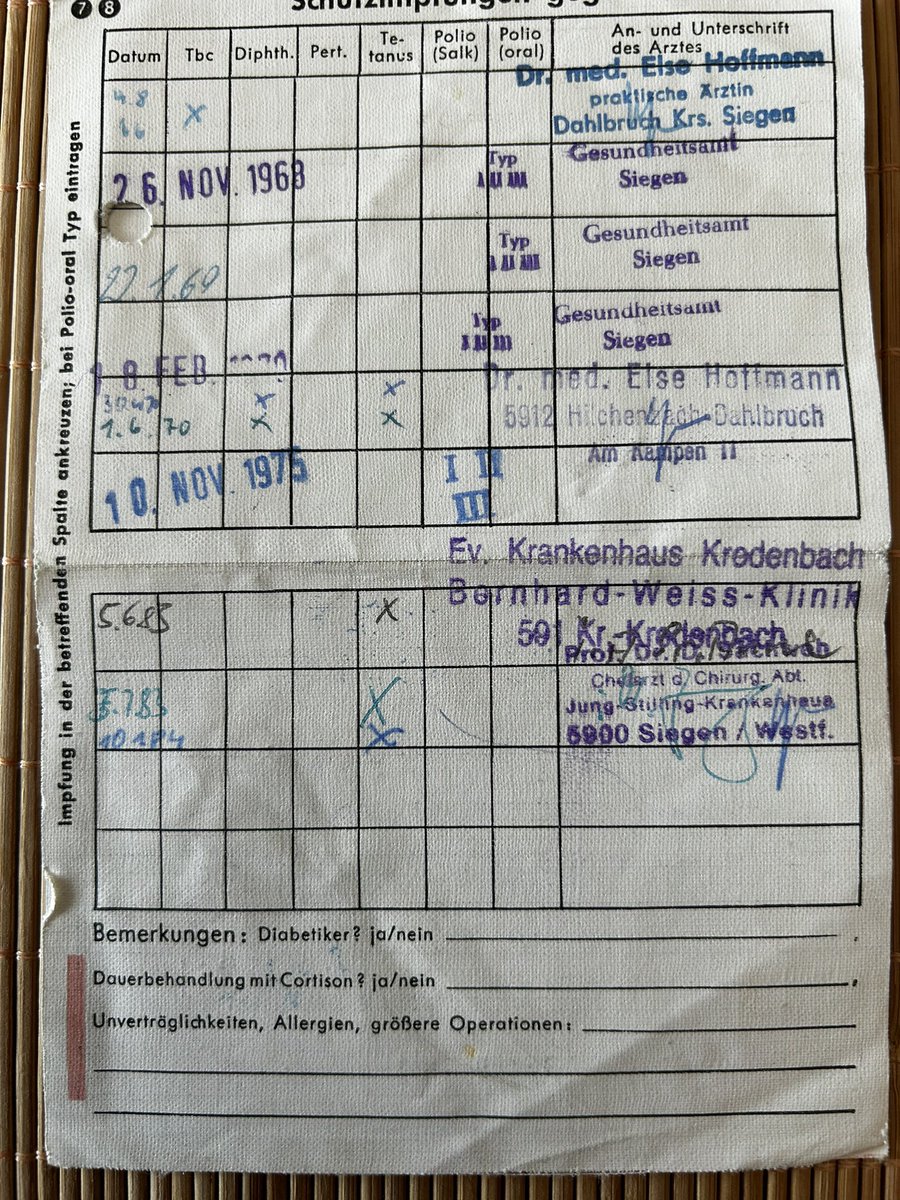 7 8
Schutzimpfungen geg
Datum Tbc Diphth. Pert. Te-tanus Polio (Salk) Polio (oral) An- und Unterschrift des Arztes
Dr. med. Else Hoffmann
praktische Ärztin
Dahlbruch Krs. Siegen
4.8
66 x
26. NOV. 1968 Typ I II III Gesundheitsamt Siegen
22.1.69 Typ I II III Gesundheitsamt Siegen
Typ I II III Gesundheitsamt Siegen
8. FEB.
Dr. med. Else Hoffmann
30.4.70 x x
1.6.70 x x 5912 Hilchenbach-Dahlbruch
Am Kampen 11
10. NOV. 1975 I II III
Ev. Krankenhaus Kredenbach
Bernhard-Weiss-Klinik
5.6.83 x 591 Kr.-Kredenbach
Prof. Dr.
Chefarzt d. Chirurg. Abt.
5.7.83 x Jung-Stilling-Krankenhaus
10 1 84 x 5900 Siegen / Westf.
Impfung in der betreffenden Spalte ankreuzen; bei Polio-oral Typ eintragen
Bemerkungen: Diabetiker? ja/nein
Dauerbehandlung mit Cortison? ja/nein
Unverträglichkeiten, Allergien, größere Operationen: